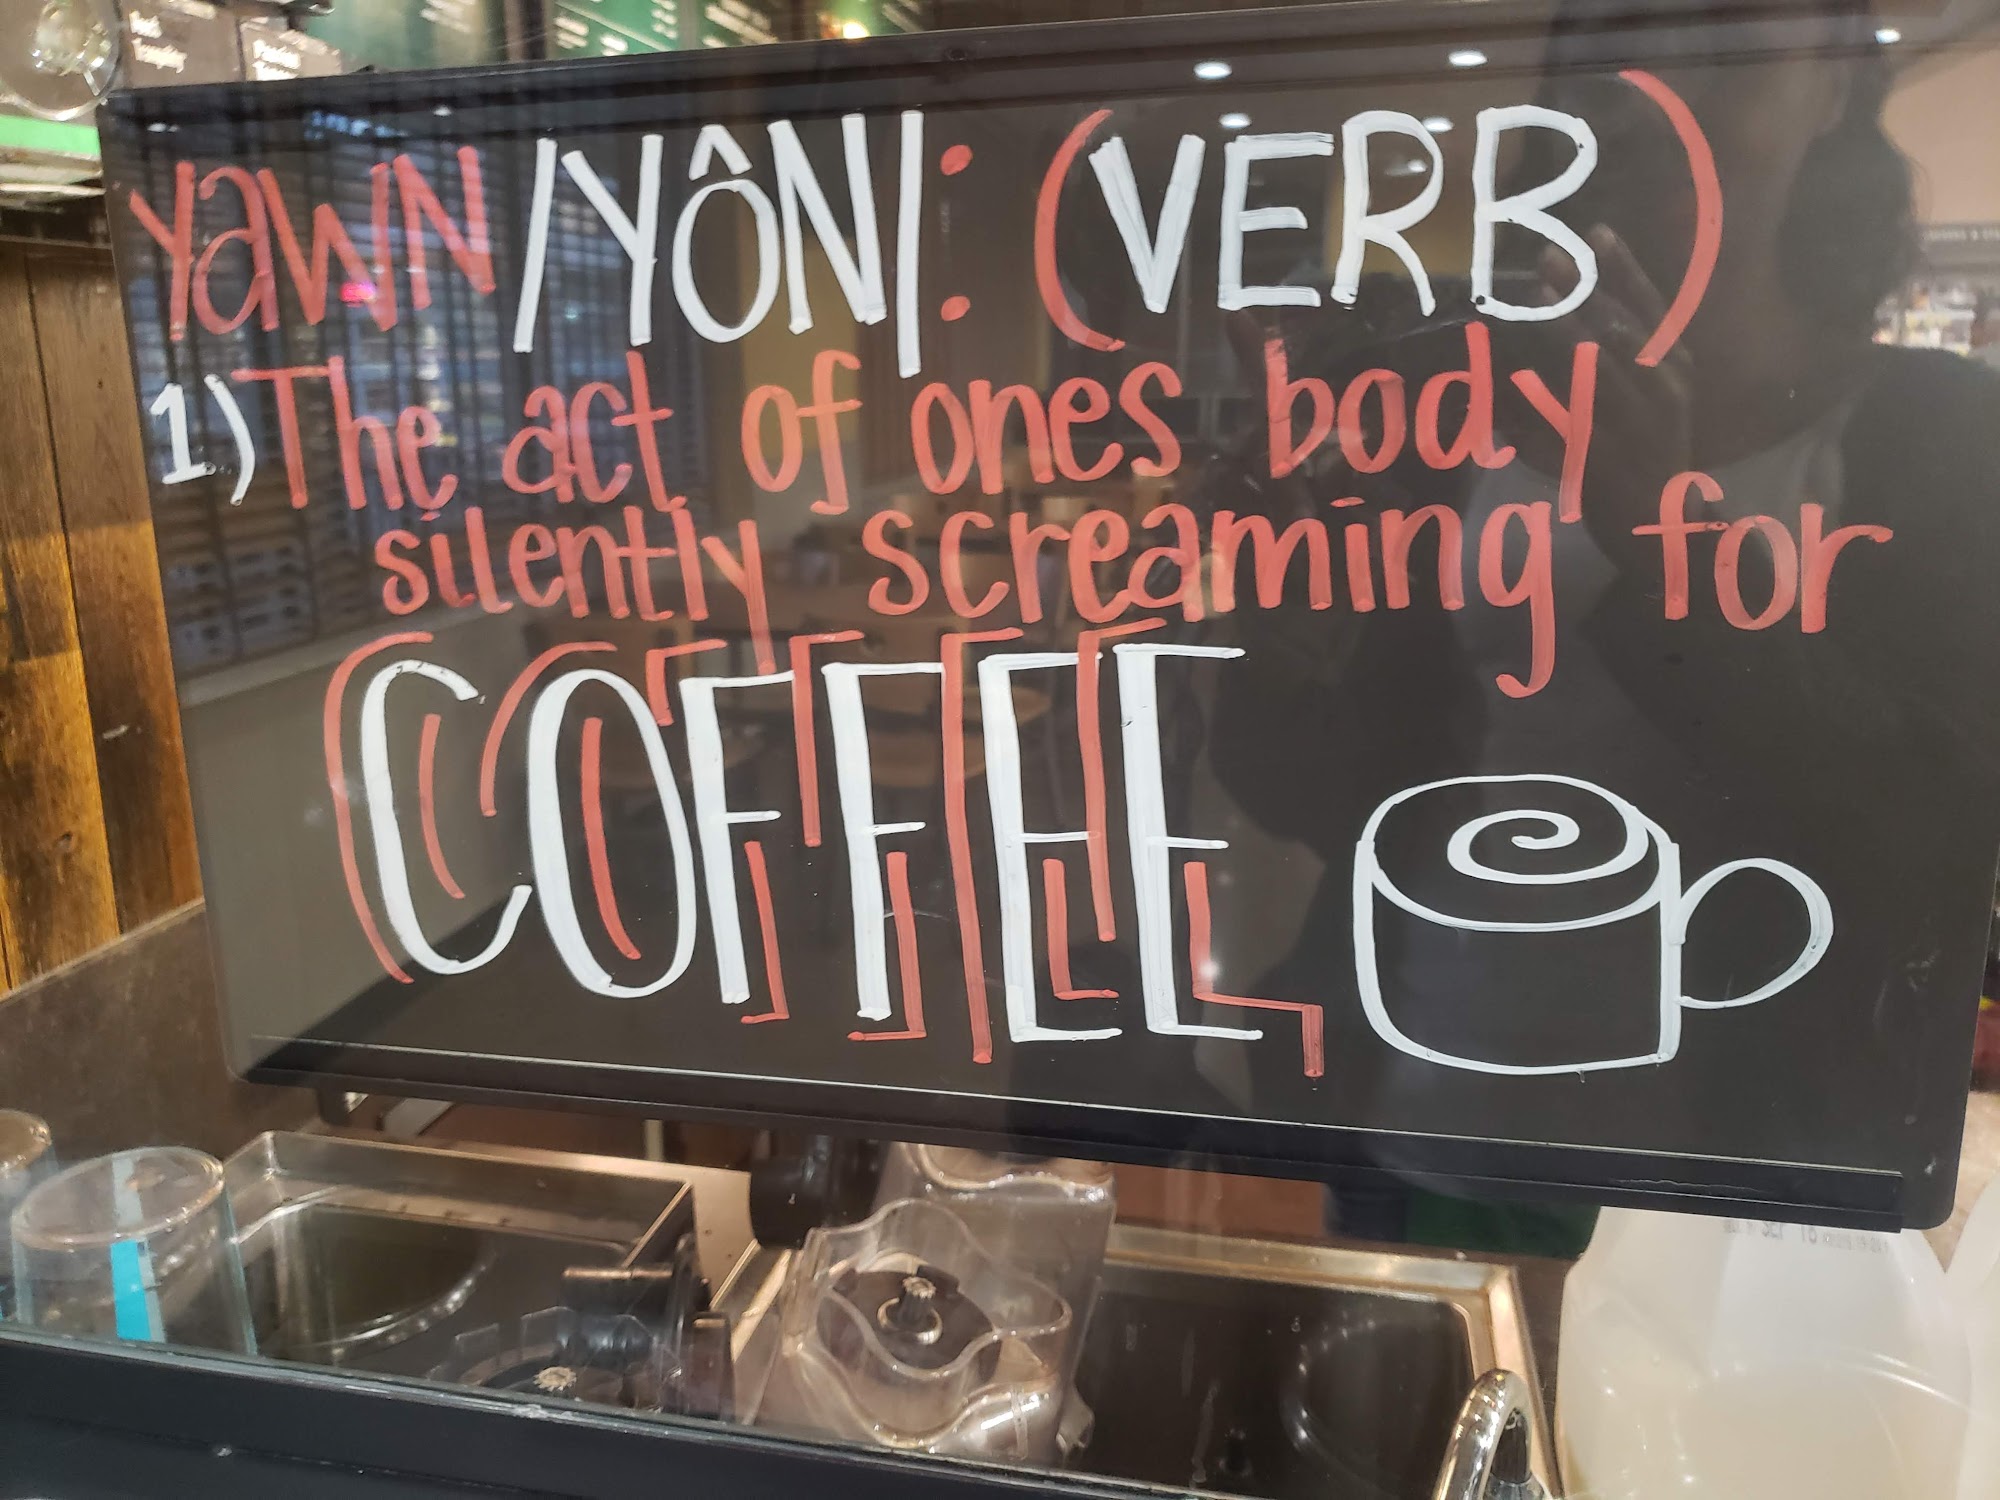 YaWN /YÔN/: (VERB)
1) The act of ones body
silently screaming for
COFFEE
SEP 16